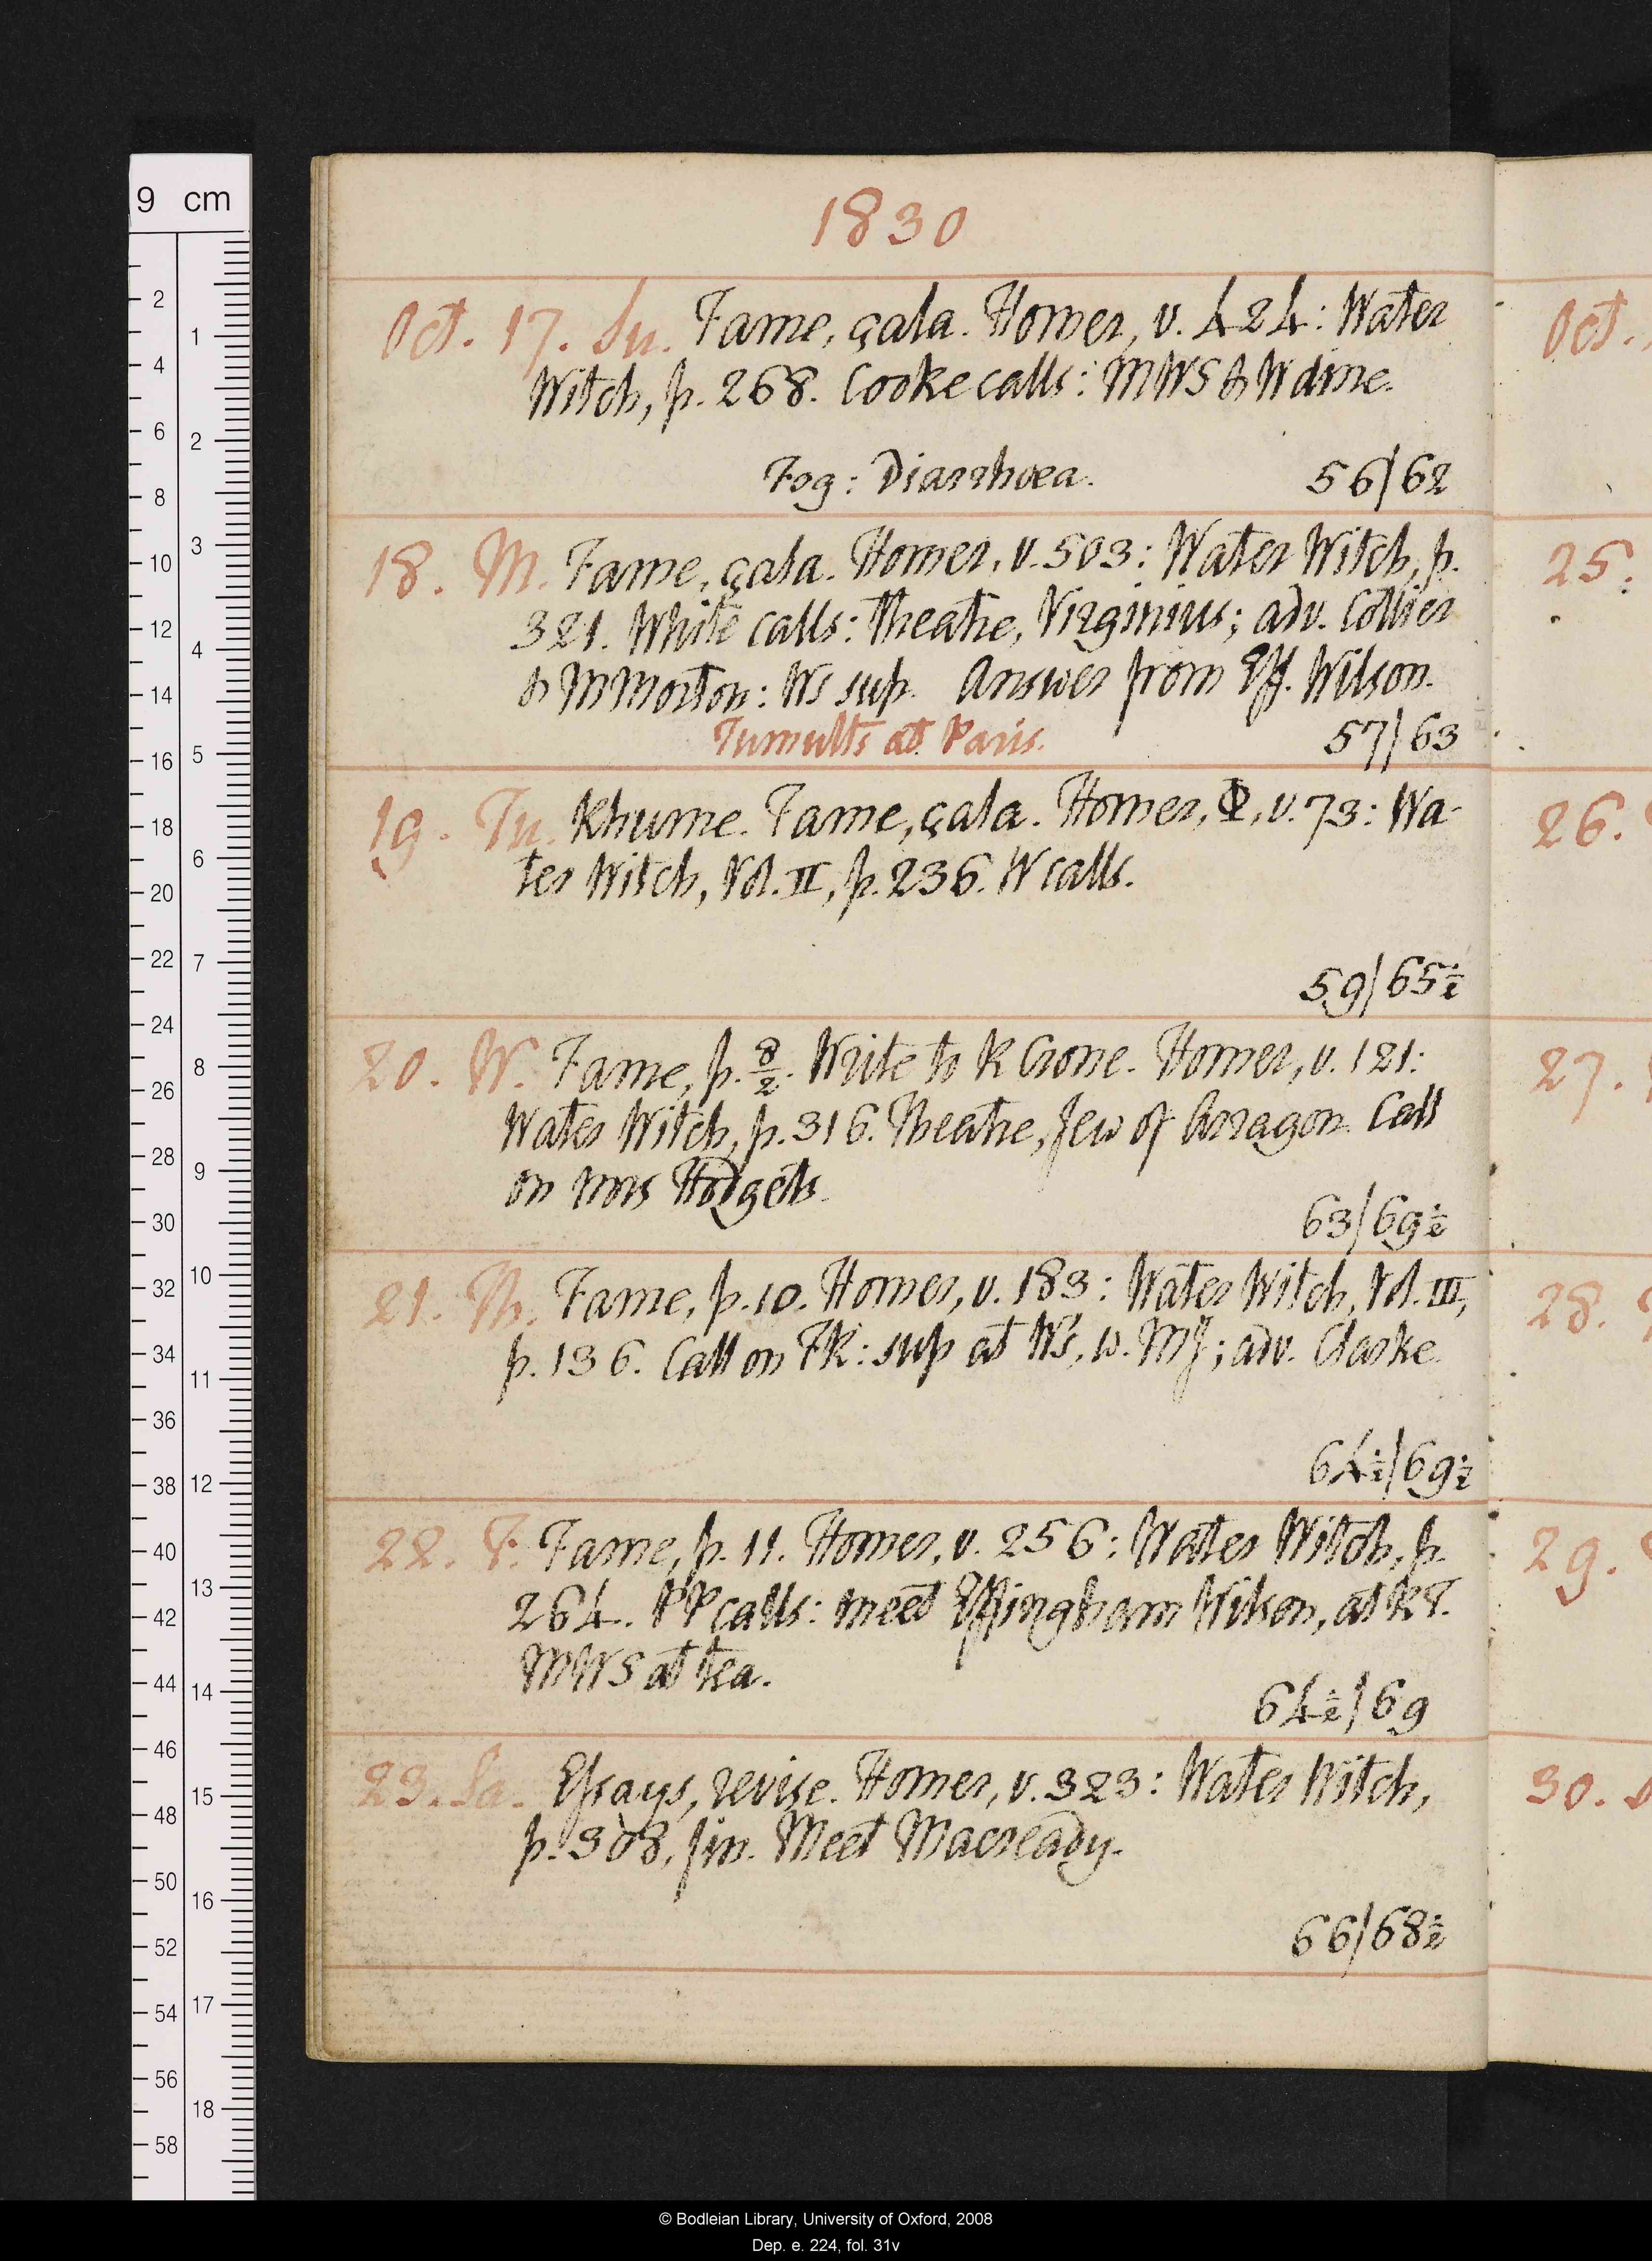 1830
Oct. 17. Su. Fame, çala. Homer, v. 424: Water
Witch, p. 268. Cooke calls: MWS & W dine.
Fog: Diarrhœa. 56/62
18. M. Fame, çala. Homer, v. 503: Water Witch, p.
321. White calls: Theatre, Virginius; adv. Collier
& M Morton: Ws sup. Answer from Eff. Wilson.
Tumults at Paris. 57/63
19. Tu. Rhume. Fame, çala. Homer, Φ, v. 73: Wa-
ter Witch, Vol. II, p. 236. W calls.
59/65½
20. W. Fame, p. 8/2. Write to R Crone. Homer, v. 121:
Water Witch, p. 316. Theatre, Jew of Arragon. Call
on mrs Hodgets.
63/69½
21. Th. Fame, p. 10. Homer, v. 183: Water Witch, Vol. III,
p. 136. Call on FK: sup at W's, w. MJ; adv. Clarke.
64½/69½
22. F. Fame, p. 11. Homer, v. 256: Water Witch, p.
264. PP calls: meet Effingham Wilson, at RT.
MWS at tea.
64½/69
23. Sa. Essays, revise. Homer, v. 323: Water Witch,
p. 308, fin. Meet Macready.
66/68½
Oct.
25.
26.
27.
28.
29.
30.
9 cm
2
4
6
8
10
12
14
16
18
20
22
24
26
28
30
32
34
36
38
40
42
44
46
48
50
52
54
56
58
1
2
3
4
5
6
7
8
9
10
11
12
13
14
15
16
17
18
© Bodleian Library, University of Oxford, 2008
Dep. e. 224, fol. 31v